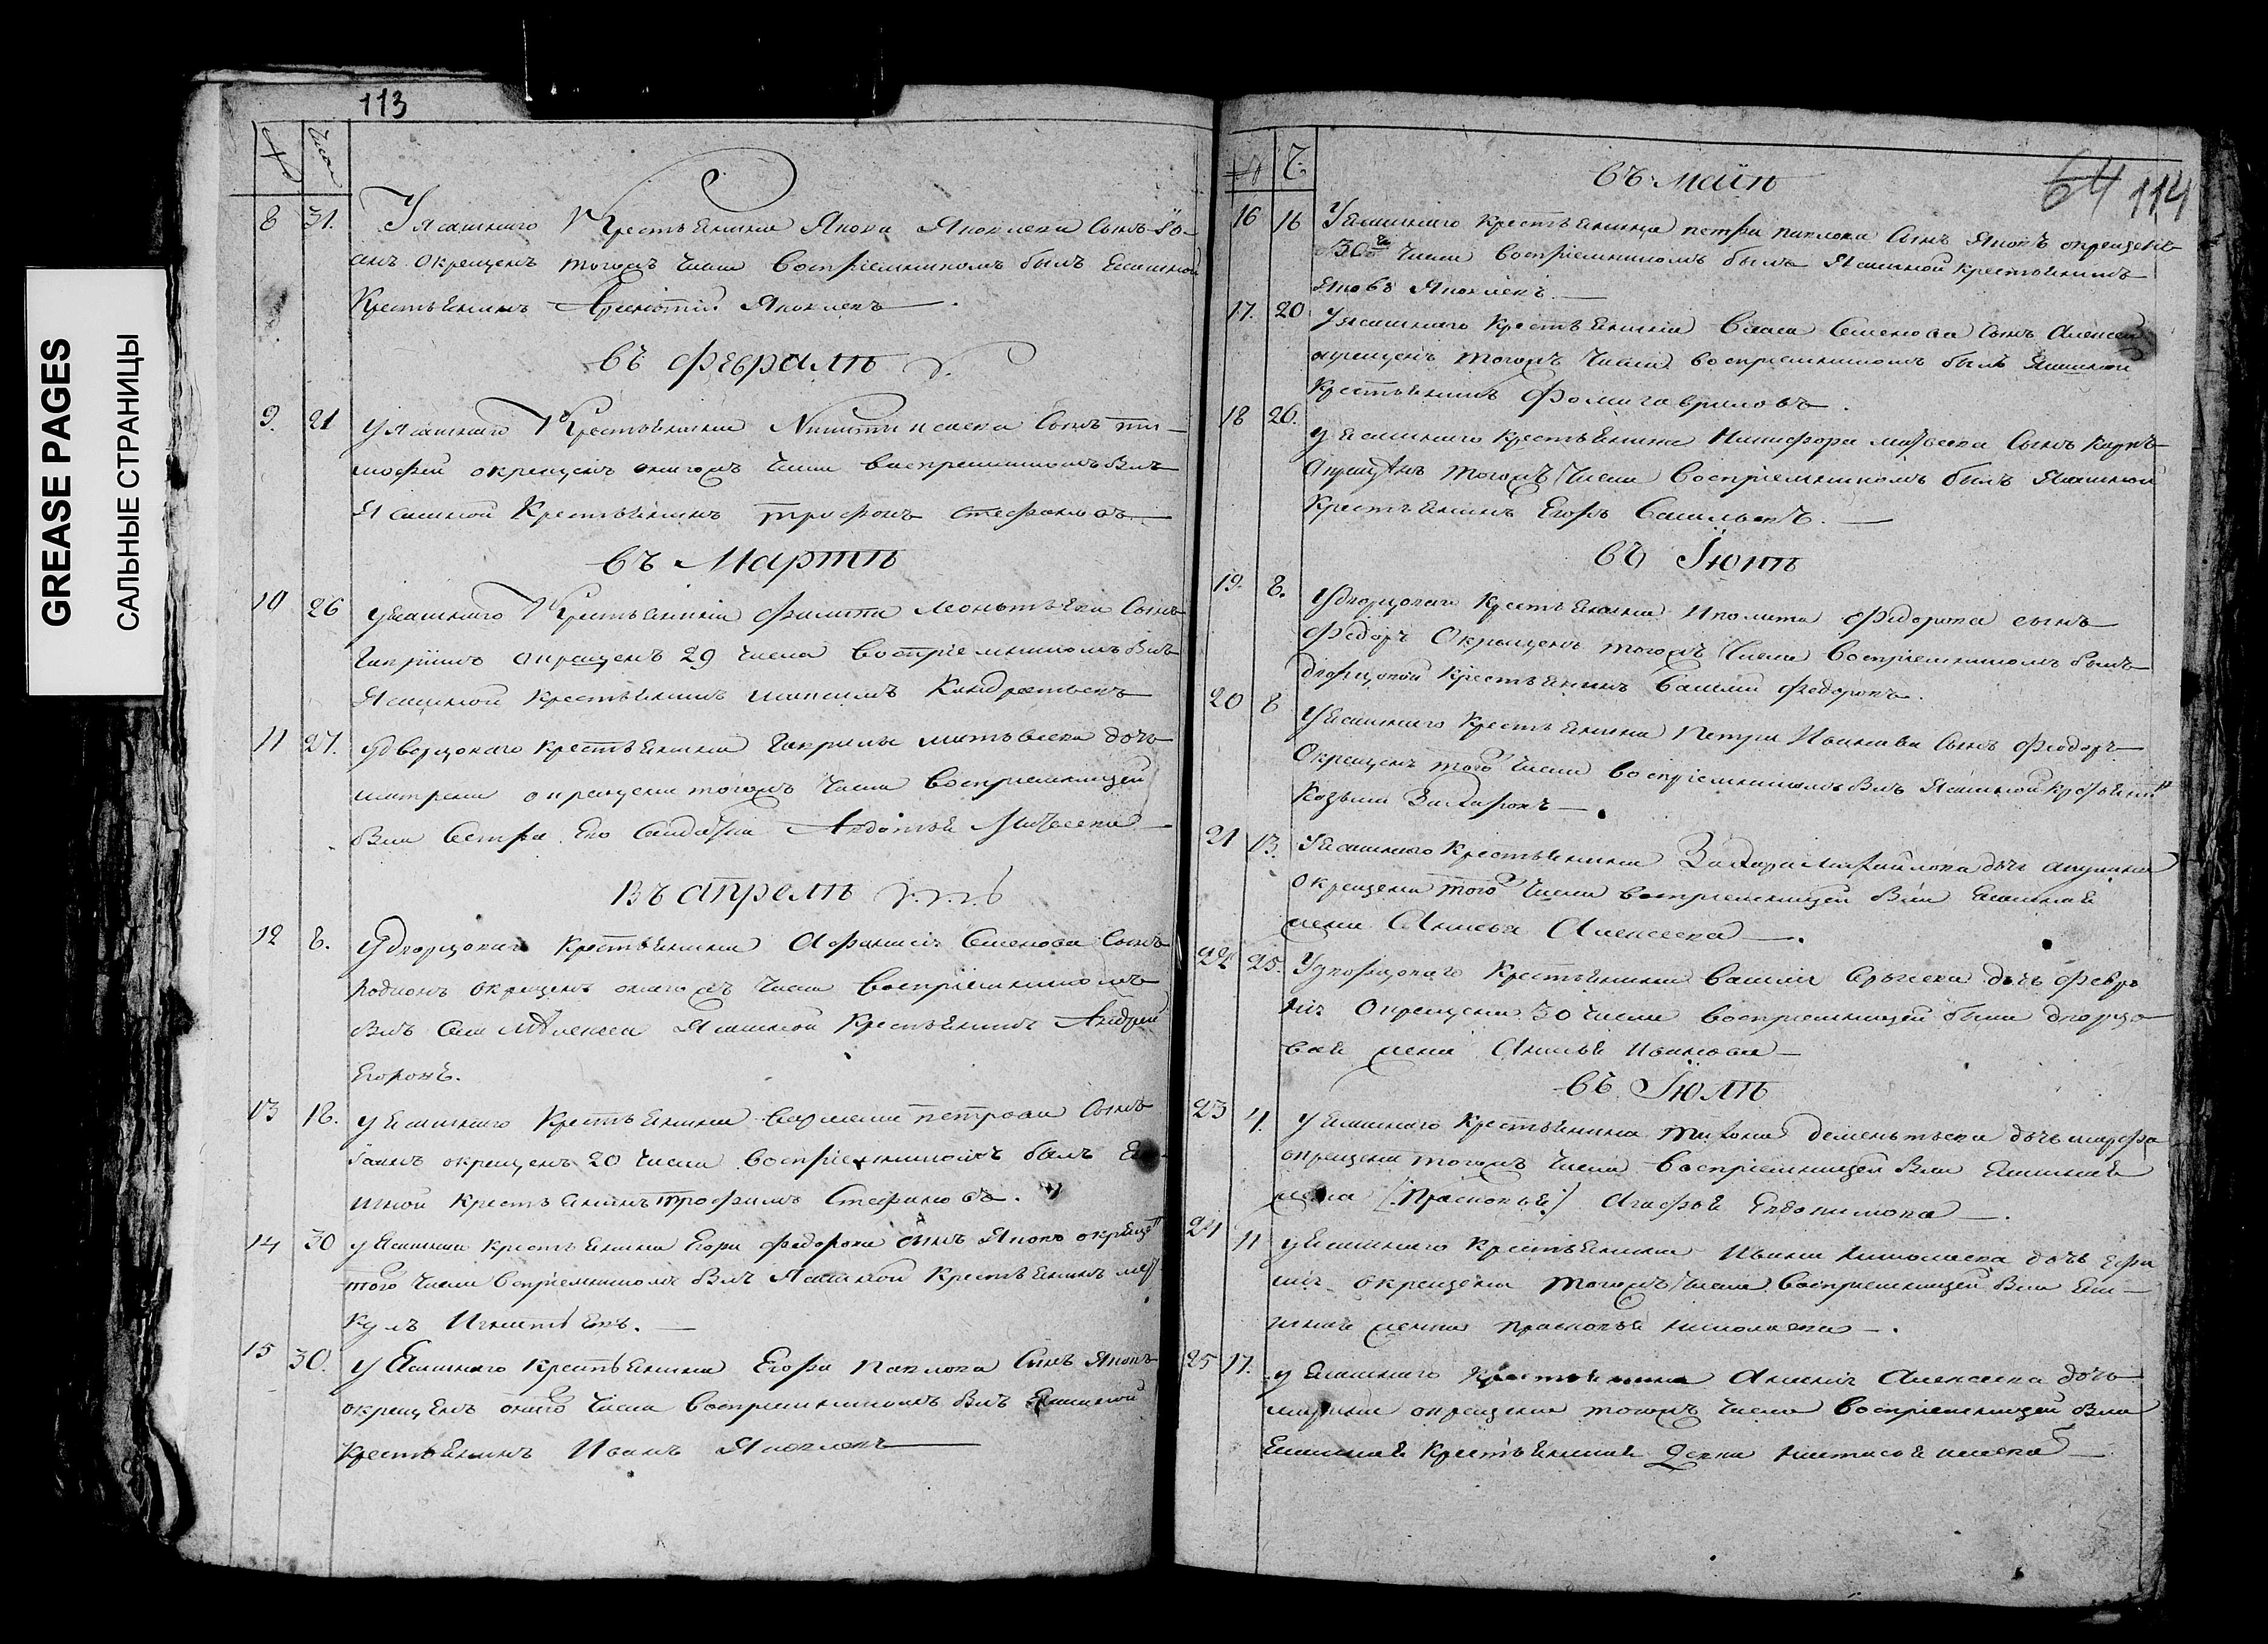 GREASE PAGES
САЛЬНЫЕ СТРАНИЦЫ
113
№ Число
8 31. У Ясашнаго Крестьянина Якова Яковлева Сынъ Іо-
анъ окрещенъ тогожъ числа воспріемникомъ былъ Есашной
Крестьянинъ Яковлевъ
въ февралѣ
9. 21 у Ясашнаго Крестьянина Никиты исаева Сынъ ти-
мофей окрещенъ онагожъ числа воспріемникомъ былъ
Ясашной Крестьянинъ трофимъ стефановъ
въ Мартѣ
10 26 у Ясашнаго Крестьянина Филипа леонтьева Сынъ
Гаврiилъ окрещенъ 29 числа воспріемникомъ былъ
Ясашной крестьянинъ максимъ Кондратьевъ
11 27. У дворцоваго крестьянина Гаврилы матвеева дочь
матрена окрещена тогожъ числа воспріемницей
была Сестра Его Авдотья Матвеева
Въ апрелѣ
12 8. У дворцоваго крестьянина Афанасія Семенова Сынъ
Родионъ окрещенъ онагожъ числа воспріемникомъ
былъ Села Алексеева Ясашной Крестьянинъ Андрей
Егоровъ.
13 18. у Есашнаго Крестьянина варламе петрова Сынъ
Іоанъ окрещенъ 20 числа воспріемникомъ былъ Еса-
шной крестьянинъ трофимъ Стефановъ.
14 30 у Есашнаго крестьянина Егора федорова сынъ Яковъ окрещенъ
того числа воспріемникомъ былъ Ясашной Крестьянинъ мер-
кулъ Игнатьевъ.
15 30. у Есашнаго крестьянина Егора Павлова Сынъ Яковъ
окрещенъ онаго числа воспріемникомъ былъ Ясашной
крестьянинъ Иванъ Яковлевъ
64 114
№ Ч.
въ маіѣ
16 16 У Ясашнаго крестьянина петра павлова Сынъ Яковъ окрещенъ
30го числа воспріемникомъ былъ Ясашной крестьянинъ
Яковъ Яковлевъ
17. 20 У ясашнаго крестьянина Власа Семенова сынъ Алексей
окрещенъ тогожъ числа воспріемникомъ былъ Ясашной
крестьянинъ Фома гавриловъ.
18 26. у Есашнаго крестьянина Никифора матвеева Сынъ Карпъ
окрещенъ тогожъ числа воспріемникомъ былъ Ясашной
крестьянинъ Егоръ Васильевъ.
въ Іюнѣ
19. 8. У дворцоваго крестьянина Иполита Федорова сынъ
Федоръ Окрещенъ тогожъ числа воспріемникомъ былъ
дворцовой крестьянинъ Василий Федоровъ.
20 8 У Есашнаго крестьянина Петра Иванова Сынъ Феодоръ
Окрещенъ того числа воспріемникомъ былъ Ясашной крестьянинъ
Козьма Захаровъ
21 13. У Есашнаго крестьянина Захара михайлова дочь акулина
окрещена того числа воспріемницей была Есашная
жена Анисья Алексеева.
22 25. У дворцоваго крестьянина Василія Сергеева дочь февро
нія Окрещена 30 числа воспріемницей была дворцо
вая жена Анисья Иванова
въ Іюлѣ
23 4. У Есашнаго крестьянина тихона дементьева дочь марфа
окрещена тогожъ числа воспріемницей была Есашная
жена (Прасковья) Агафья Евдокимова.
24 11 у Есашнаго крестьянина Ивана Николаева дочь Ефи
мія окрещена тогожъ числа воспріемницей была Еса-
шная женка прасковья николаева.
25 17. у Есашнаго крестьянина Алексеева дочь
марина окрещена тогожъ числа воспріемницей была
Есашная крестьянская девка настасья